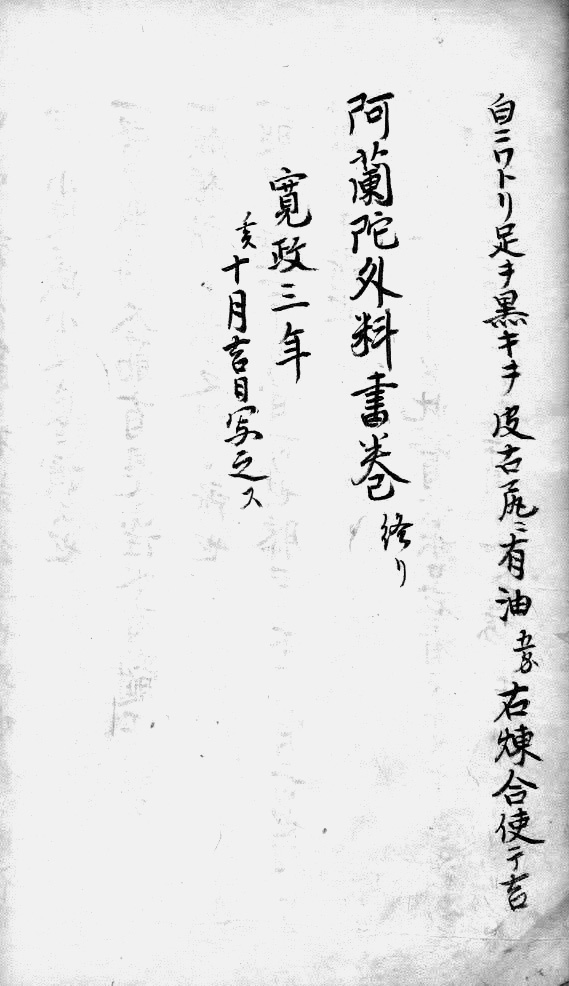 白ニワトリ足キ黒キキ皮右尻ニ有油 五匁 右煉合使テ吉
阿蘭陀外料書巻 終り
寛政三年
亥十月吉日写之ス